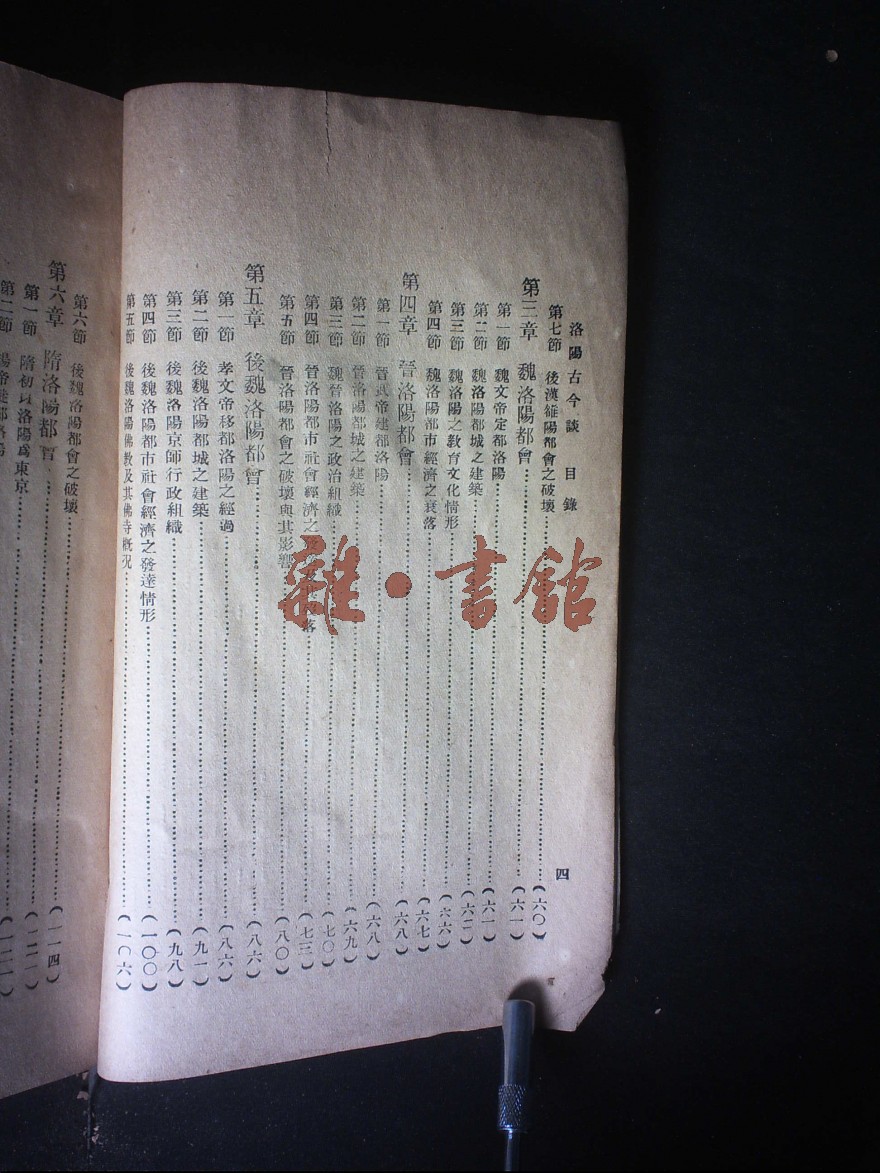 洛陽古今談 目錄 四
第七節 後漢雒陽都會之破壞……(六〇)
第三章 魏洛陽都會……(六一)
第一節 魏文帝定都洛陽……(六一)
第二節 魏洛陽都城之建築……(六二)
第三節 魏洛陽之敎育文化情形……(六六)
第四節 魏洛陽都市經濟之衰落……(六七)
第四章 晉洛陽都會……(六八)
第一節 晉武帝建都洛陽……(六八)
第二節 晉洛陽都城之建築……(六九)
第三節 魏晉洛陽之政治組織……(七〇)
第四節 晉洛陽都市社會經濟之 落……(七三)
第五節 晉洛陽都會之破壞與其影響……(八〇)
第五章 後魏洛陽都會……(八六)
第一節 孝文帝移都洛陽之經過……(八六)
第二節 後魏洛陽都城之建築……(九一)
第三節 後魏洛陽京師行政組織……(九八)
第四節 後魏洛陽都市社會經濟之發達情形……(一〇〇)
第五節 後魏洛陽佛敎及其佛寺槪況……(一〇六)
第六節 後魏洛陽都會之破壞……(一一四)
第六章 隋洛陽都會……(一二一)
第一節 隋初以洛陽爲東京……(一二一)
第二節 煬帝遷都洛陽
雜·書館